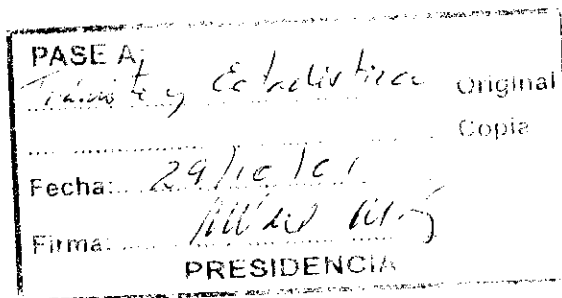 PASE A:
Trámite y Estadística Original
Copia
Fecha: 29/10/01
Firma:
PRESIDENCIA